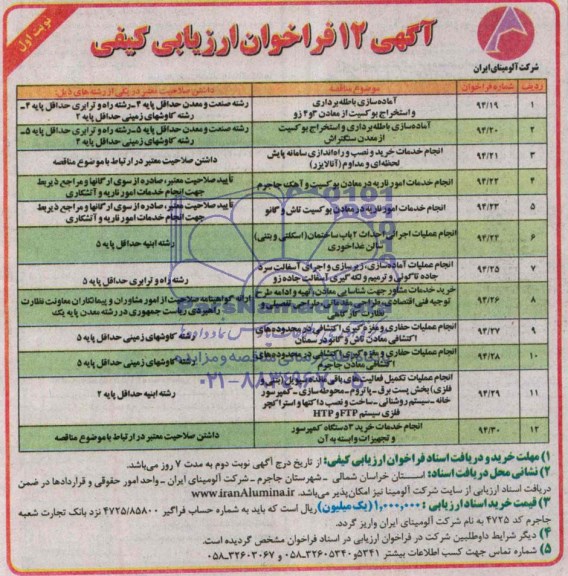 نوبت اول
آگهی ۱۲ فراخوان ارزیابی کیفی
شرکت آلومینای ایران
ردیف شماره فراخوان موضوع مناقصه داشتن صلاحیت معتبر در یکی از رشته های ذیل:
۱ ۹۴/۱۹ آماده‌سازی باطله‌برداری و استخراج بوکسیت از معادن گو۲ زو رشته صنعت و معدن حداقل پایه ۴ــ رشته راه و ترابری حداقل پایه ۴ــ رشته کاوشهای زمینی حداقل پایه ۲
۲ ۹۴/۲۰ آماده‌سازی باطله‌برداری و استخراج بوکسیت از معدن سنگتراش رشته صنعت و معدن حداقل پایه ۵ــ رشته راه و ترابری حداقل پایه ۵ــ رشته کاوشهای زمینی حداقل پایه ۲
۳ ۹۴/۲۱ انجام خدمات خرید و نصب و راه‌اندازی سامانه پایش لحظه‌ای و مداوم (آنالایزر) داشتن صلاحیت معتبر در ارتباط با موضوع مناقصه
۴ ۹۴/۲۲ انجام خدمات امور ناریه در معادن بوکسیت و آهک جاجرم تأیید صلاحیت معتبر، صادره از سوی ارگانها و مراجع ذیربط جهت انجام خدمات امور ناریه و آتشکاری
۵ ۹۴/۲۳ انجام خدمات امور ناریه در معادن بوکسیت تاش و گانو تأیید صلاحیت معتبر، صادره از سوی ارگانها و مراجع ذیربط جهت انجام خدمات امور ناریه و آتشکاری
۶ ۹۴/۲۴ انجام عملیات اجرائی احداث ۲ باب ساختمان (اسکلتی و بتنی) سالن غذاخوری رشته ابنیه حداقل پایه ۵
۷ ۹۴/۲۵ انجام عملیات آماده‌سازی، زیرسازی و اجرای آسفالت سرد جاده تاگوئی و ترمیم و لکه‌گیری آسفالت جاده زو رشته راه و ترابری حداقل پایه ۵
۸ ۹۴/۲۶ خرید خدمات مشاور جهت شناسایی معادن، تهیه و ادامه طرح توجیه فنی اقتصادی، طراحی مقدماتی، طراحی تفصیلی و نظارت کارگاهی ارائه گواهینامه صلاحیت از امور مشاوران و پیمانکاران معاونت نظارت راهبردی ریاست جمهوری در رشته معدن پایه یک
۹ ۹۴/۲۷ انجام عملیات حفاری و مغزه‌گیری اکتشافی در محدوده‌های اکتشافی معادن تاش و گانو در سمنان رشته کاوشهای زمینی حداقل پایه ۵
۱۰ ۹۴/۲۸ انجام عملیات حفاری و مغزه‌گیری اکتشافی در محدوده‌های اکتشافی معادن جاجرم رشته کاوشهای زمینی حداقل پایه ۵
۱۱ ۹۴/۲۹ انجام عملیات تکمیل فعالیت‌های باقی‌مانده سیویل (بتنی و فلزی) بخش پست برق ــ پاتروم ــ محوطه‌سازی ــ کمپرسور خانه ــ سیستم روشنائی ــ ساخت و نصب داکتها و استراکچر فلزی سیستم FTP و HTP رشته ابنیه حداقل پایه ۲
۱۲ ۹۴/۳۰ انجام خدمات خرید ۳ دستگاه کمپرسور و تجهیزات وابسته به آن داشتن صلاحیت معتبر در ارتباط با موضوع مناقصه
ParsNamadData
۰۲۱-۸۸۳۴۹۶۷۰-۵
۱) مهلت خرید و دریافت اسناد فراخوان ارزیابی کیفی: از تاریخ درج آگهی نوبت دوم به مدت ۷ روز می‌باشد.
۲) نشانی محل دریافت اسناد: استان خراسان شمالی ــ شهرستان جاجرم ــ شرکت آلومینای ایران ــ واحد امور حقوقی و قراردادها در ضمن
دریافت اسناد ارزیابی از سایت شرکت آلومینا نیز امکان‌پذیر می‌باشد. www.iranAlumina.ir
۳) قیمت خرید اسناد ارزیابی: ۱,۰۰۰,۰۰۰ (یک میلیون) ریال است که باید به شماره حساب فراگیر ۴۷۲۵/۸۵۸۰۰ نزد بانک تجارت شعبه
جاجرم کد ۴۷۲۵ به نام شرکت آلومینای ایران واریز گردد.
۴) دیگر شرایط داوطلبین شرکت در فراخوان ارزیابی در اسناد فراخوان مشخص گردیده است.
۵) شماره تماس جهت کسب اطلاعات بیشتر ۵۳۴۱و۳۲۶۰۵۳۴۰-۰۵۸ و ۳۲۶۰۳۰۶۷-۰۵۸